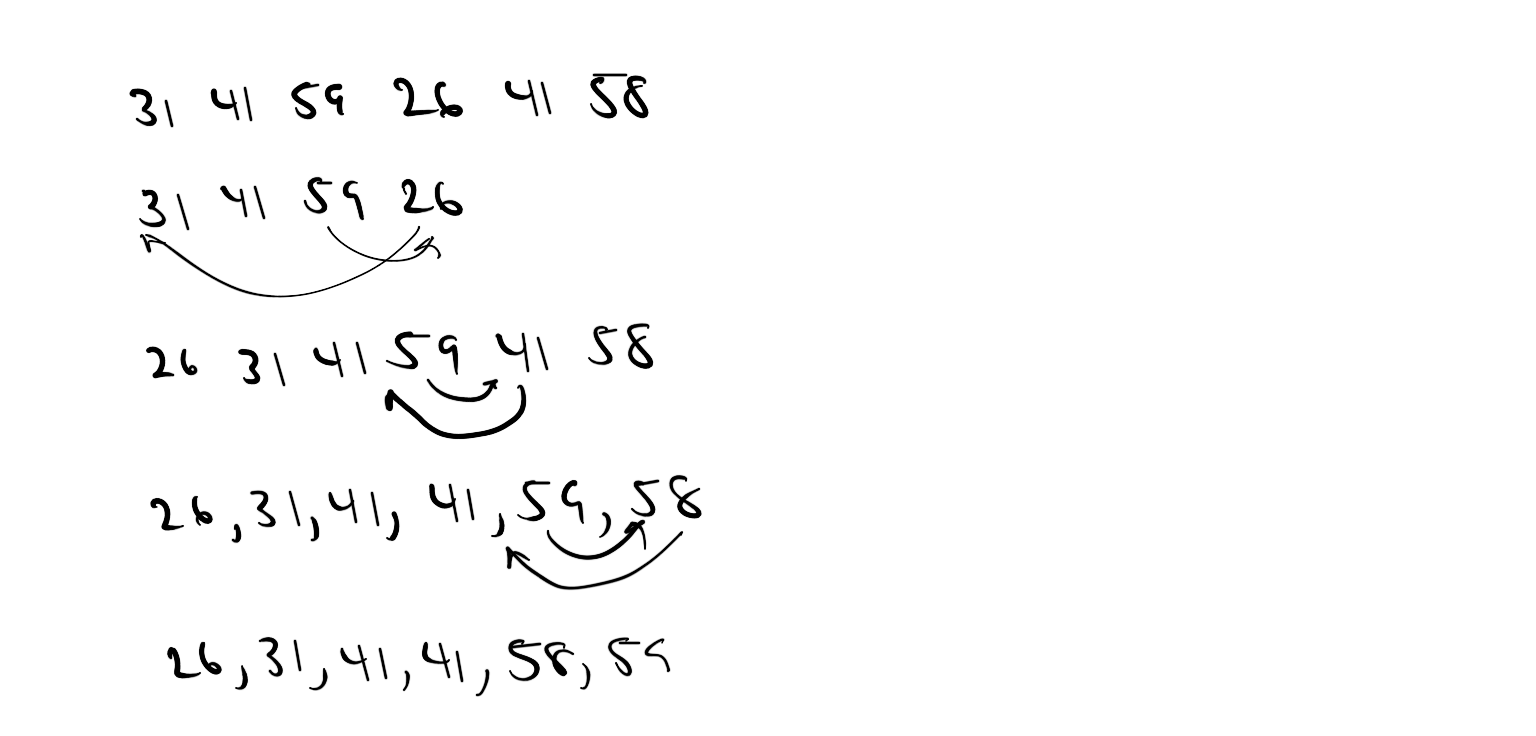 31 41 59 26 41 58
31 41 59 26
26 31 41 59 41 58
26, 31, 41, 41, 59, 58
26, 31, 41, 41, 58, 59